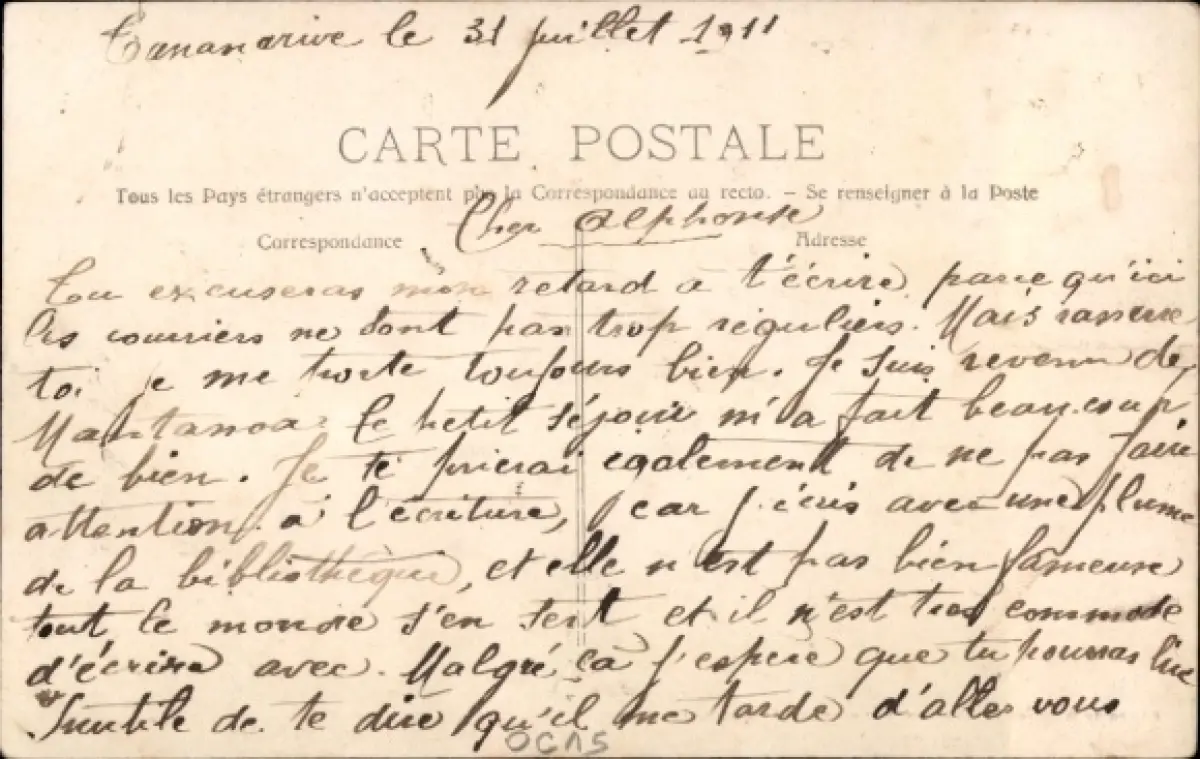 Tananarive le 31 juillet 1911
CARTE POSTALE
Tous les Pays étrangers n'acceptent pas la Correspondance au recto. - Se renseigner à la Poste
Cher Alphonse
Correspondance Adresse
Tu excuseras mon retard a t'écrire parce qu'ici
les courriers ne sont pas trop réguliers. Mais rassure
toi je me porte toujours bien. Je suis revenu de
le petit séjour m'a fait beaucoup
de bien. Je te prierai également de ne pas faire
attention à l'écriture, car j'écris avec une plume
de la bibliothèque, et elle n'est pas bien fameuse
tout le monde s'en sert et il n'est pas commode
d'écrire avec. Malgré ça j'espere que tu pourras lire
Inutile de te dire qu'il me tarde d'aller vous
OCAS